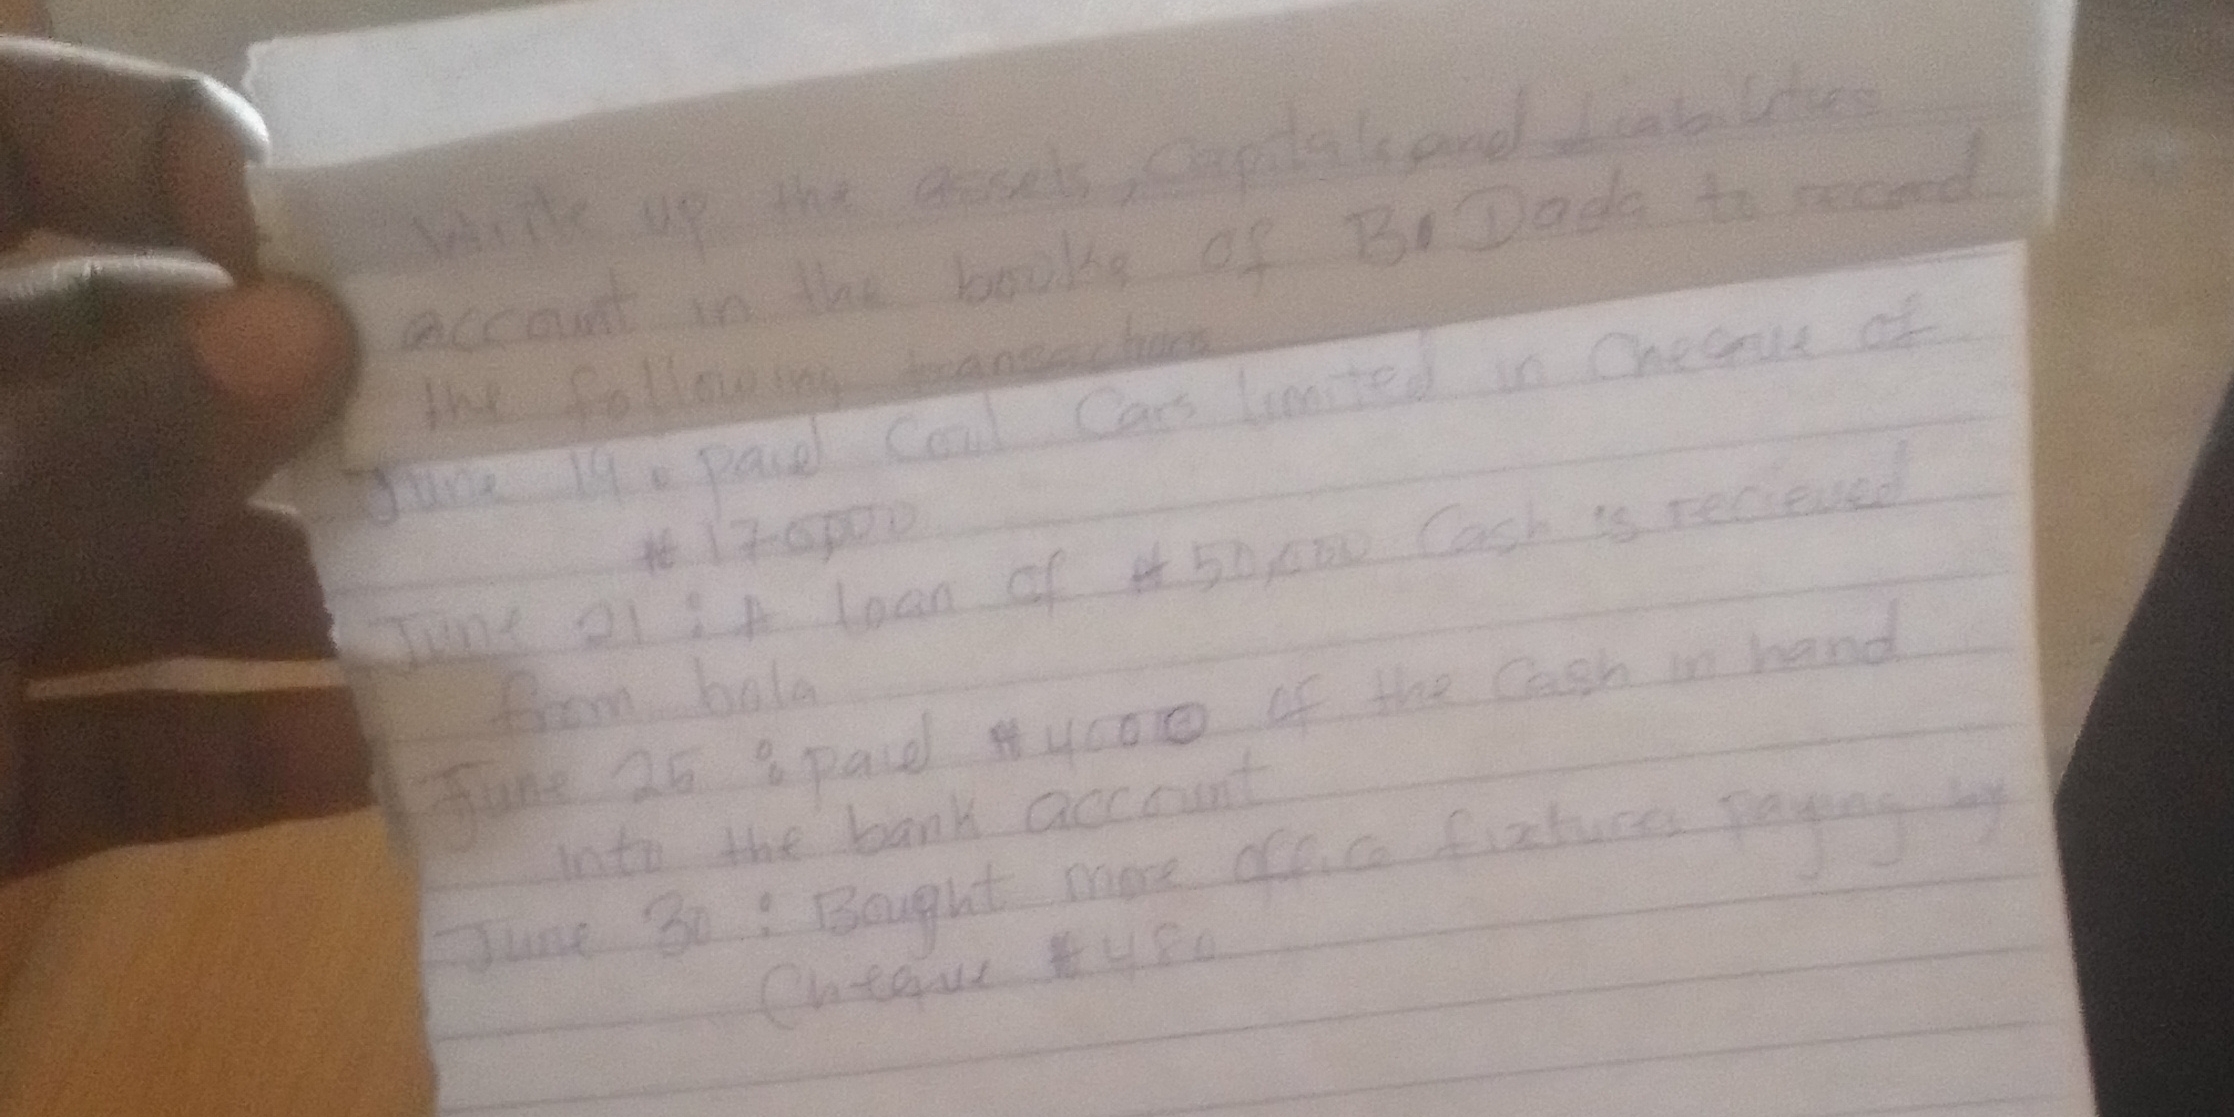 Write up the assets, Capitals and Liabilities
account in the books of B. Dada to record
the following transactions
June 19. paid Cars limited in Cheque of
#170,000
June 21: A loan of #50,000 Cash is recieved
from bola
June 25: paid #4000 of the Cash in hand
into the bank account
June 30: Bought more office fixtures paying by
Cheque #480